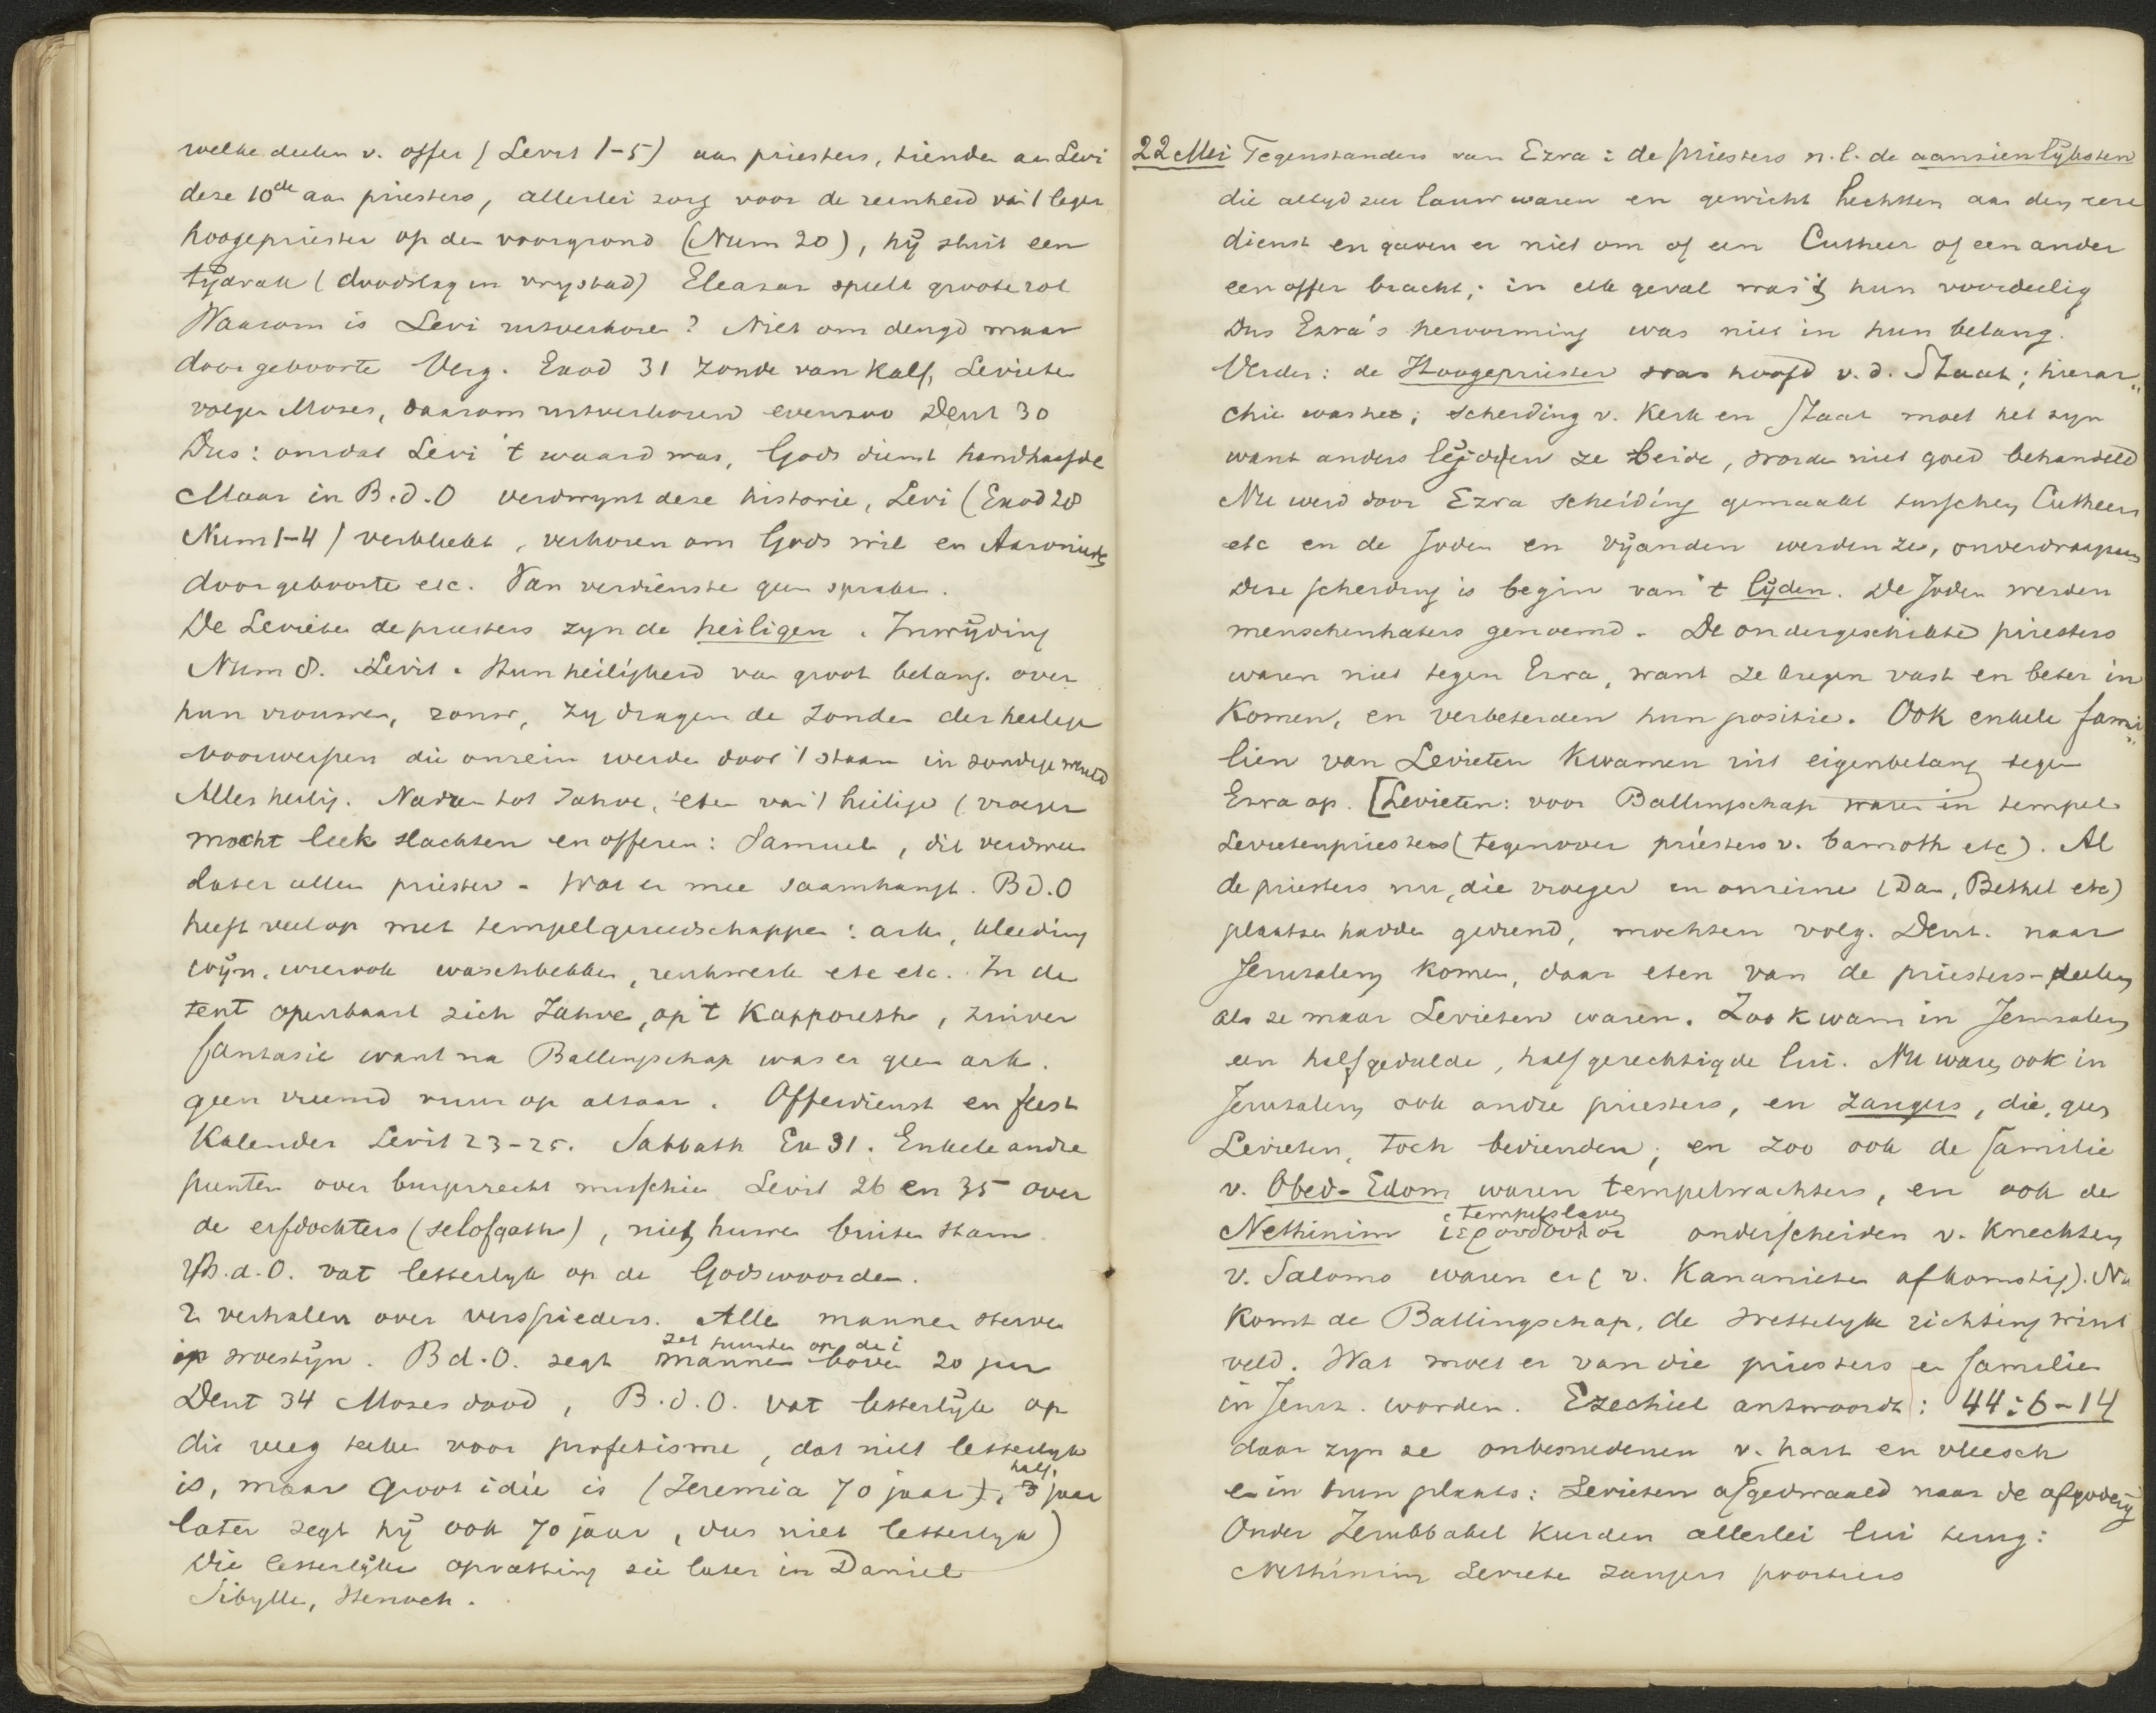 welke deelen v. offer (Levit 1-5) aan priesters, tienden aan Levi
deze 10de aan priesters, allerlei zorg voor de reinheid van 't leger
hoogepriester op den voorgrond (Num 20), hÿ sluit een
tÿdvak (doodslag en vrystad) Eleasar speelt groote rol
Waarom is Levi uitverkoren? Niet om deugd maar
door geboorte Verg. Exod 31 zonde van Kalf, Levieten
volgen Moses, daarom uitverkoren evenzoo Deut 30
Dus: omdat Levi 't waard was, Gods dienst handhaafde
Maar in B.d.O verdwynt deze historie, Levi (Exod 28
Num 1-4) verbleekt, verkoren om Gods wil en Aaronieden
door geboorte etc. Van verdienste geen sprake.
De Levieten de priesters zyn de heiligen. Inwÿding
Num 8. Levit. Hun heiligheid van groot belang. over
hun vrouwen, rouw, zy dragen de zonden der heilige
voorwerpen die onrein werden door 't staan in zondige wereld
Alles heilig. Naderen tot Jahve, eten van 't heilige (vroeger
mocht leek slachten en offeren: Samuel, dit verdween
later alleen priester. Wat er mee saamhangt. B.d.O
heeft veel op met tempelgereedschappen: ark, kleeding
wÿn, wierook waschbekken, reukwerk etc etc. In de
tent openbaart zich Jahve, op 't Kapporeth, zuiver
fantasie want na Ballingschap was er geen ark.
geen vreemd vuur op altaar. Offerdienst en feest
Kalender Levit 23-25. Sabbath Ex 31. Enkele andre
punten over burgerrecht misschien Levit 26 en 35 over
de erfdochters (selofgath), niet huwen buiten stam
B.d.O. vat letterlyk op de Godswoorden.
2 verhalen over verspieders. Alle mannen sterven
in woestÿn. B.d.O. zegt mannen boven 20 jaar
zet punten op de i
Deut 34 Moses dood, B.d.O. vat letterlÿk op
dit veeg teeken voor profetisme, dat niet letterlyk
is, maar groot idée is (Jeremia 70 jaar), half. 3 jaar
later zegt hÿ ook 70 jaar, dus niet letterlyk)
Die letterlÿke opvatting zie later in Daniel
Sibylle, Henoch.
22 Mei Tegenstanders van Ezra: de priesters n.l. de aanzienlÿksten
die altyd zeer lauw waren en gewicht hechtten aan den eere
dienst en gaven er niet om of een Cutheer of een ander
een offer bracht; in elk geval was 't hun voordeelig
Dus Ezra's hervorming was niet in hun belang.
Verder: de Hoogepriester was hoofd v.d. Staat; hierar„
chie was het; scheiding v. Kerk en Staat moet het zyn
want anders lÿdden ze beide, worden niet goed behandeld
Nu werd door Ezra scheiding gemaakt tusschen Cutheers
etc en de Joden en vÿanden werden ze, onverdraagzaam
Deze scheiding is begin van 't lÿden. De Joden werden
menschenhaters genoemd. De ondergeschikte priesters
waren niet tegen Ezra, want ze kregen vast en beter in
Komen, en verbeterden hun positie. Ook enkele fami„
lien van Levieten Kwamen uit eigenbelang tegen
Ezra op. [Levieten: voor Ballingschap waren in tempel
Levietenpriesters (tegenover priesters v. bamoth etc). Al
de priesters nu, die vroeger en onreine (Dan, Bethel etc)
plaatsen hadden gediend, mochten volg. Deut. naar
Jeruzalem komen, daar eten van de priesters-deelen
als ze maar Levieten waren. Zoo kwam in Jeruzalem
een half gedulde, half gerechtigde lui. Nu waren ook in
Jeruzalem ook andre priesters, en zangers, die, geen
Levieten, toch bedienden; en zoo ook de familie
v. Obed-Edom waren tempelwachters, en ook de
tempelslaven
Nethinim ἱερόδουλοι onderscheiden v. Knechten
v. Salomo waren er (v. Kananieten afkomstig). Nu
Komt de Ballingschap, de wettelyke richting wint
veld. Wat moet er van die priesters en familien
in Jeruz. worden. Ezechiel antwoordt: 44:6-14
daar zyn ze onbesnedenen v. hart en vleesch
en in hun plaats: Levieten afgedwaald naar de afgoderÿ
Onder Zerubbabel keerden allerlei lui terug:
Nethinim Levieten zangers poortiers